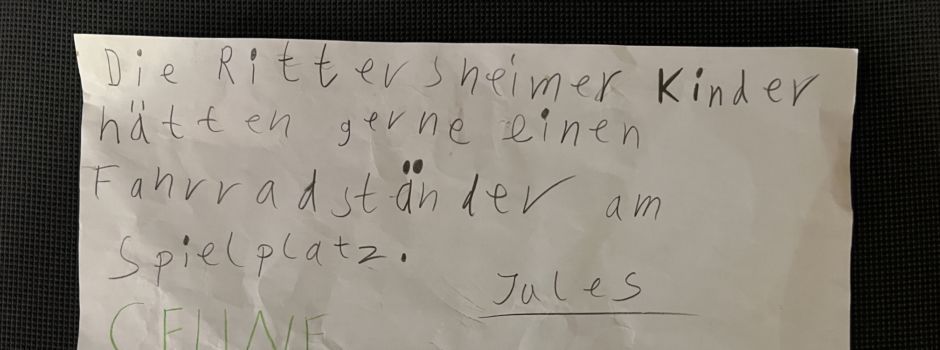 Die Rittersheimer Kinder
hätten gerne einen
Fahrradständer am
Spielplatz.
Jules
CELINE